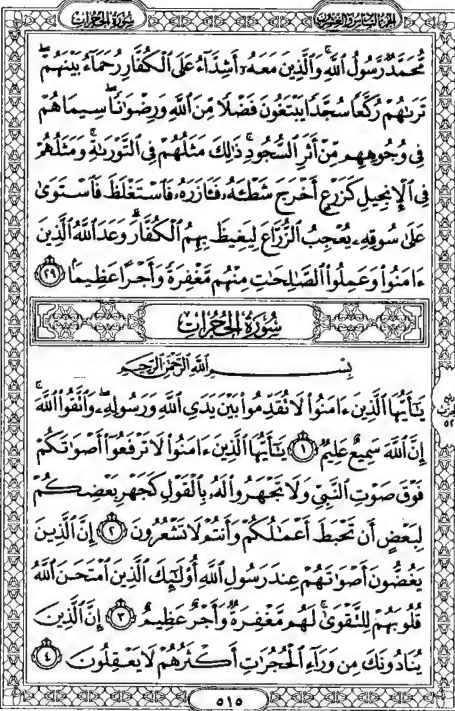 الجزء السادس والعشرون
سورة الحجرات
مُّحَمَّدٌ رَّسُولُ ٱللَّهِ وَٱلَّذِينَ مَعَهُۥٓ أَشِدَّآءُ عَلَى ٱلۡكُفَّارِ رُحَمَآءُ بَيۡنَهُمۡۖ
تَرَىٰهُمۡ رُكَّعٗا سُجَّدٗا يَبۡتَغُونَ فَضۡلٗا مِّنَ ٱللَّهِ وَرِضۡوَٰنٗاۖ سِيمَاهُمۡ
فِي وُجُوهِهِم مِّنۡ أَثَرِ ٱلسُّجُودِۚ ذَٰلِكَ مَثَلُهُمۡ فِي ٱلتَّوۡرَىٰةِۚ وَمَثَلُهُمۡ
فِي ٱلۡإِنجِيلِ كَزَرۡعٍ أَخۡرَجَ شَطۡـَٔهُۥ فَـَٔازَرَهُۥ فَٱسۡتَغۡلَظَ فَٱسۡتَوَىٰ
عَلَىٰ سُوقِهِۦ يُعۡجِبُ ٱلزُّرَّاعَ لِيَغِيظَ بِهِمُ ٱلۡكُفَّارَۗ وَعَدَ ٱللَّهُ ٱلَّذِينَ
ءَامَنُواْ وَعَمِلُواْ ٱلصَّٰلِحَٰتِ مِنۡهُم مَّغۡفِرَةٗ وَأَجۡرًا عَظِيمَۢا ٢٩
سُورَةُ الحُجُرَاتِ
بِسۡمِ ٱللَّهِ ٱلرَّحۡمَٰنِ ٱلرَّحِيمِ
يَٰٓأَيُّهَا ٱلَّذِينَ ءَامَنُواْ لَا تُقَدِّمُواْ بَيۡنَ يَدَيِ ٱللَّهِ وَرَسُولِهِۦۖ وَٱتَّقُواْ ٱللَّهَۚ
إِنَّ ٱللَّهَ سَمِيعٌ عَلِيمٞ ١ يَٰٓأَيُّهَا ٱلَّذِينَ ءَامَنُواْ لَا تَرۡفَعُوٓاْ أَصۡوَٰتَكُمۡ
فَوۡقَ صَوۡتِ ٱلنَّبِيِّ وَلَا تَجۡهَرُواْ لَهُۥ بِٱلۡقَوۡلِ كَجَهۡرِ بَعۡضِكُمۡ
لِبَعۡضٍ أَن تَحۡبَطَ أَعۡمَٰلُكُمۡ وَأَنتُمۡ لَا تَشۡعُرُونَ ٢ إِنَّ ٱلَّذِينَ
يَغُضُّونَ أَصۡوَٰتَهُمۡ عِندَ رَسُولِ ٱللَّهِ أُوْلَٰٓئِكَ ٱلَّذِينَ ٱمۡتَحَنَ ٱللَّهُ
قُلُوبَهُمۡ لِلتَّقۡوَىٰۚ لَهُم مَّغۡفِرَةٞ وَأَجۡرٌ عَظِيمٌ ٣ إِنَّ ٱلَّذِينَ
يُنَادُونَكَ مِن وَرَآءِ ٱلۡحُجُرَٰتِ أَكۡثَرُهُمۡ لَا يَعۡقِلُونَ ٤
٥١٥